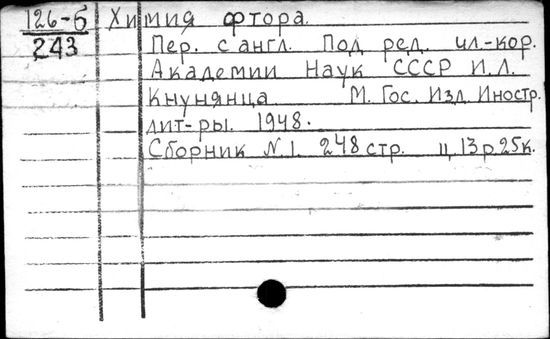 126-б Химия фтора.
243 Пер. с англ. Под ред. чл.-кор.
Академии Наук СССР И.Л.
Кнунянца М. Гос. Изд. Иностр.
лит-ры. 1948.
Сборник N.1. 248 стр. ц. 13р.25к.